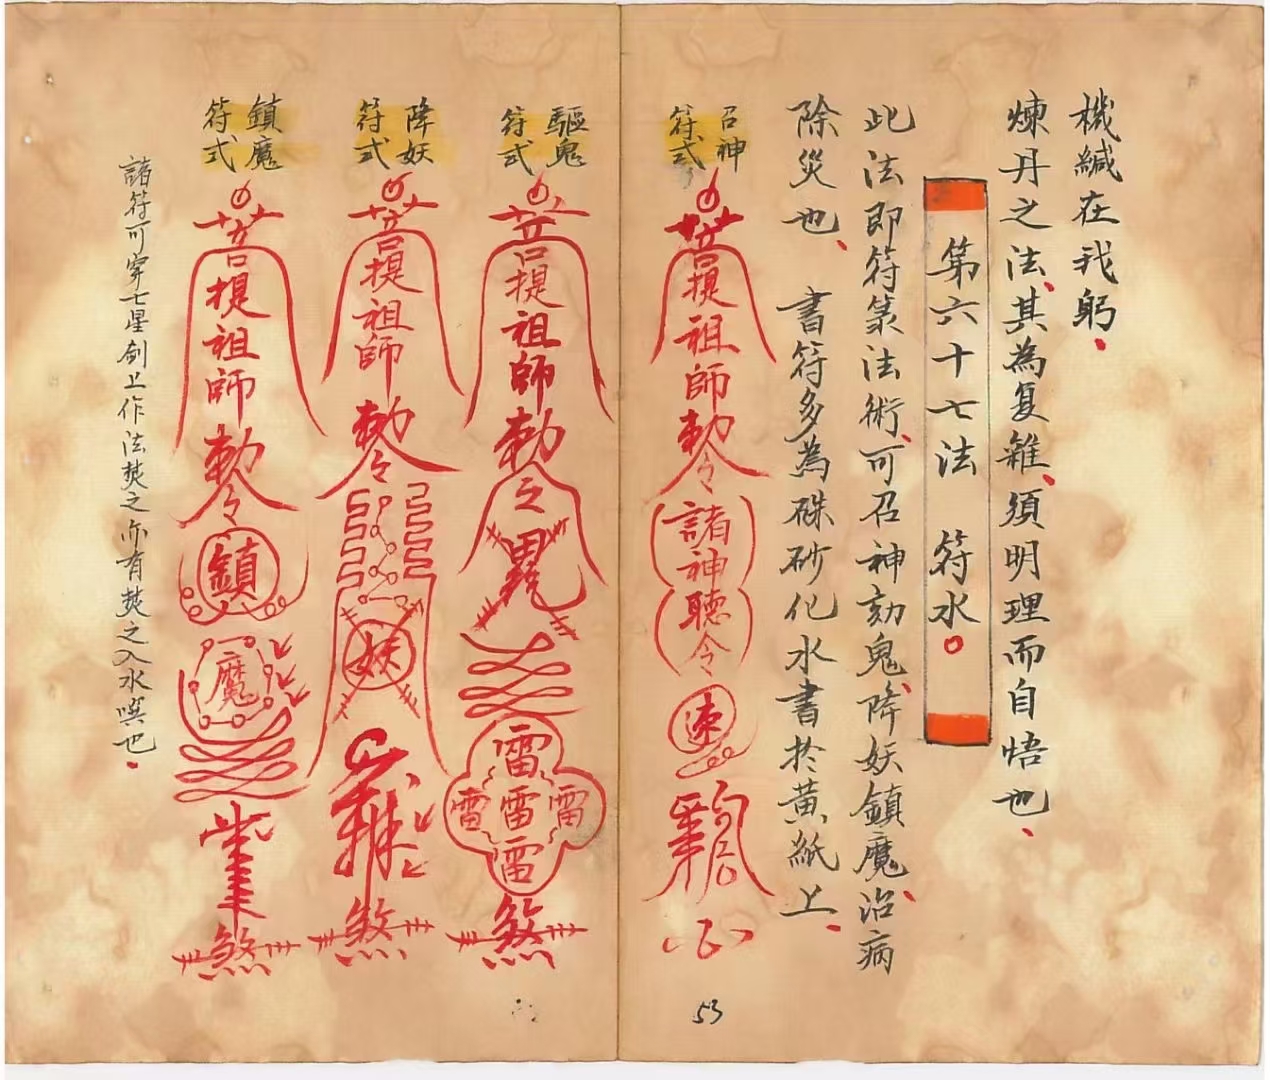 機緘在我躬、
煉丹之法、其為复雜、須明理而自悟也、
第六十七法 符水。
此法即符篆法術、可召神劾鬼、降妖鎮魔、治病
除災也、 書符多為硃砂化水書於黃紙上、
召神
符式
菩提祖師
勅令
諸神
聽令
速
驅鬼
符式
菩提祖師
勅令
雷
雷雷雷
雷
煞
降妖
符式
菩提祖師
勅令
妖
煞
鎮魔
符式
菩提祖師
勅令
鎮
魔
煞
諸符可穿七星劍上作法焚之亦有焚之入水噀也、
53